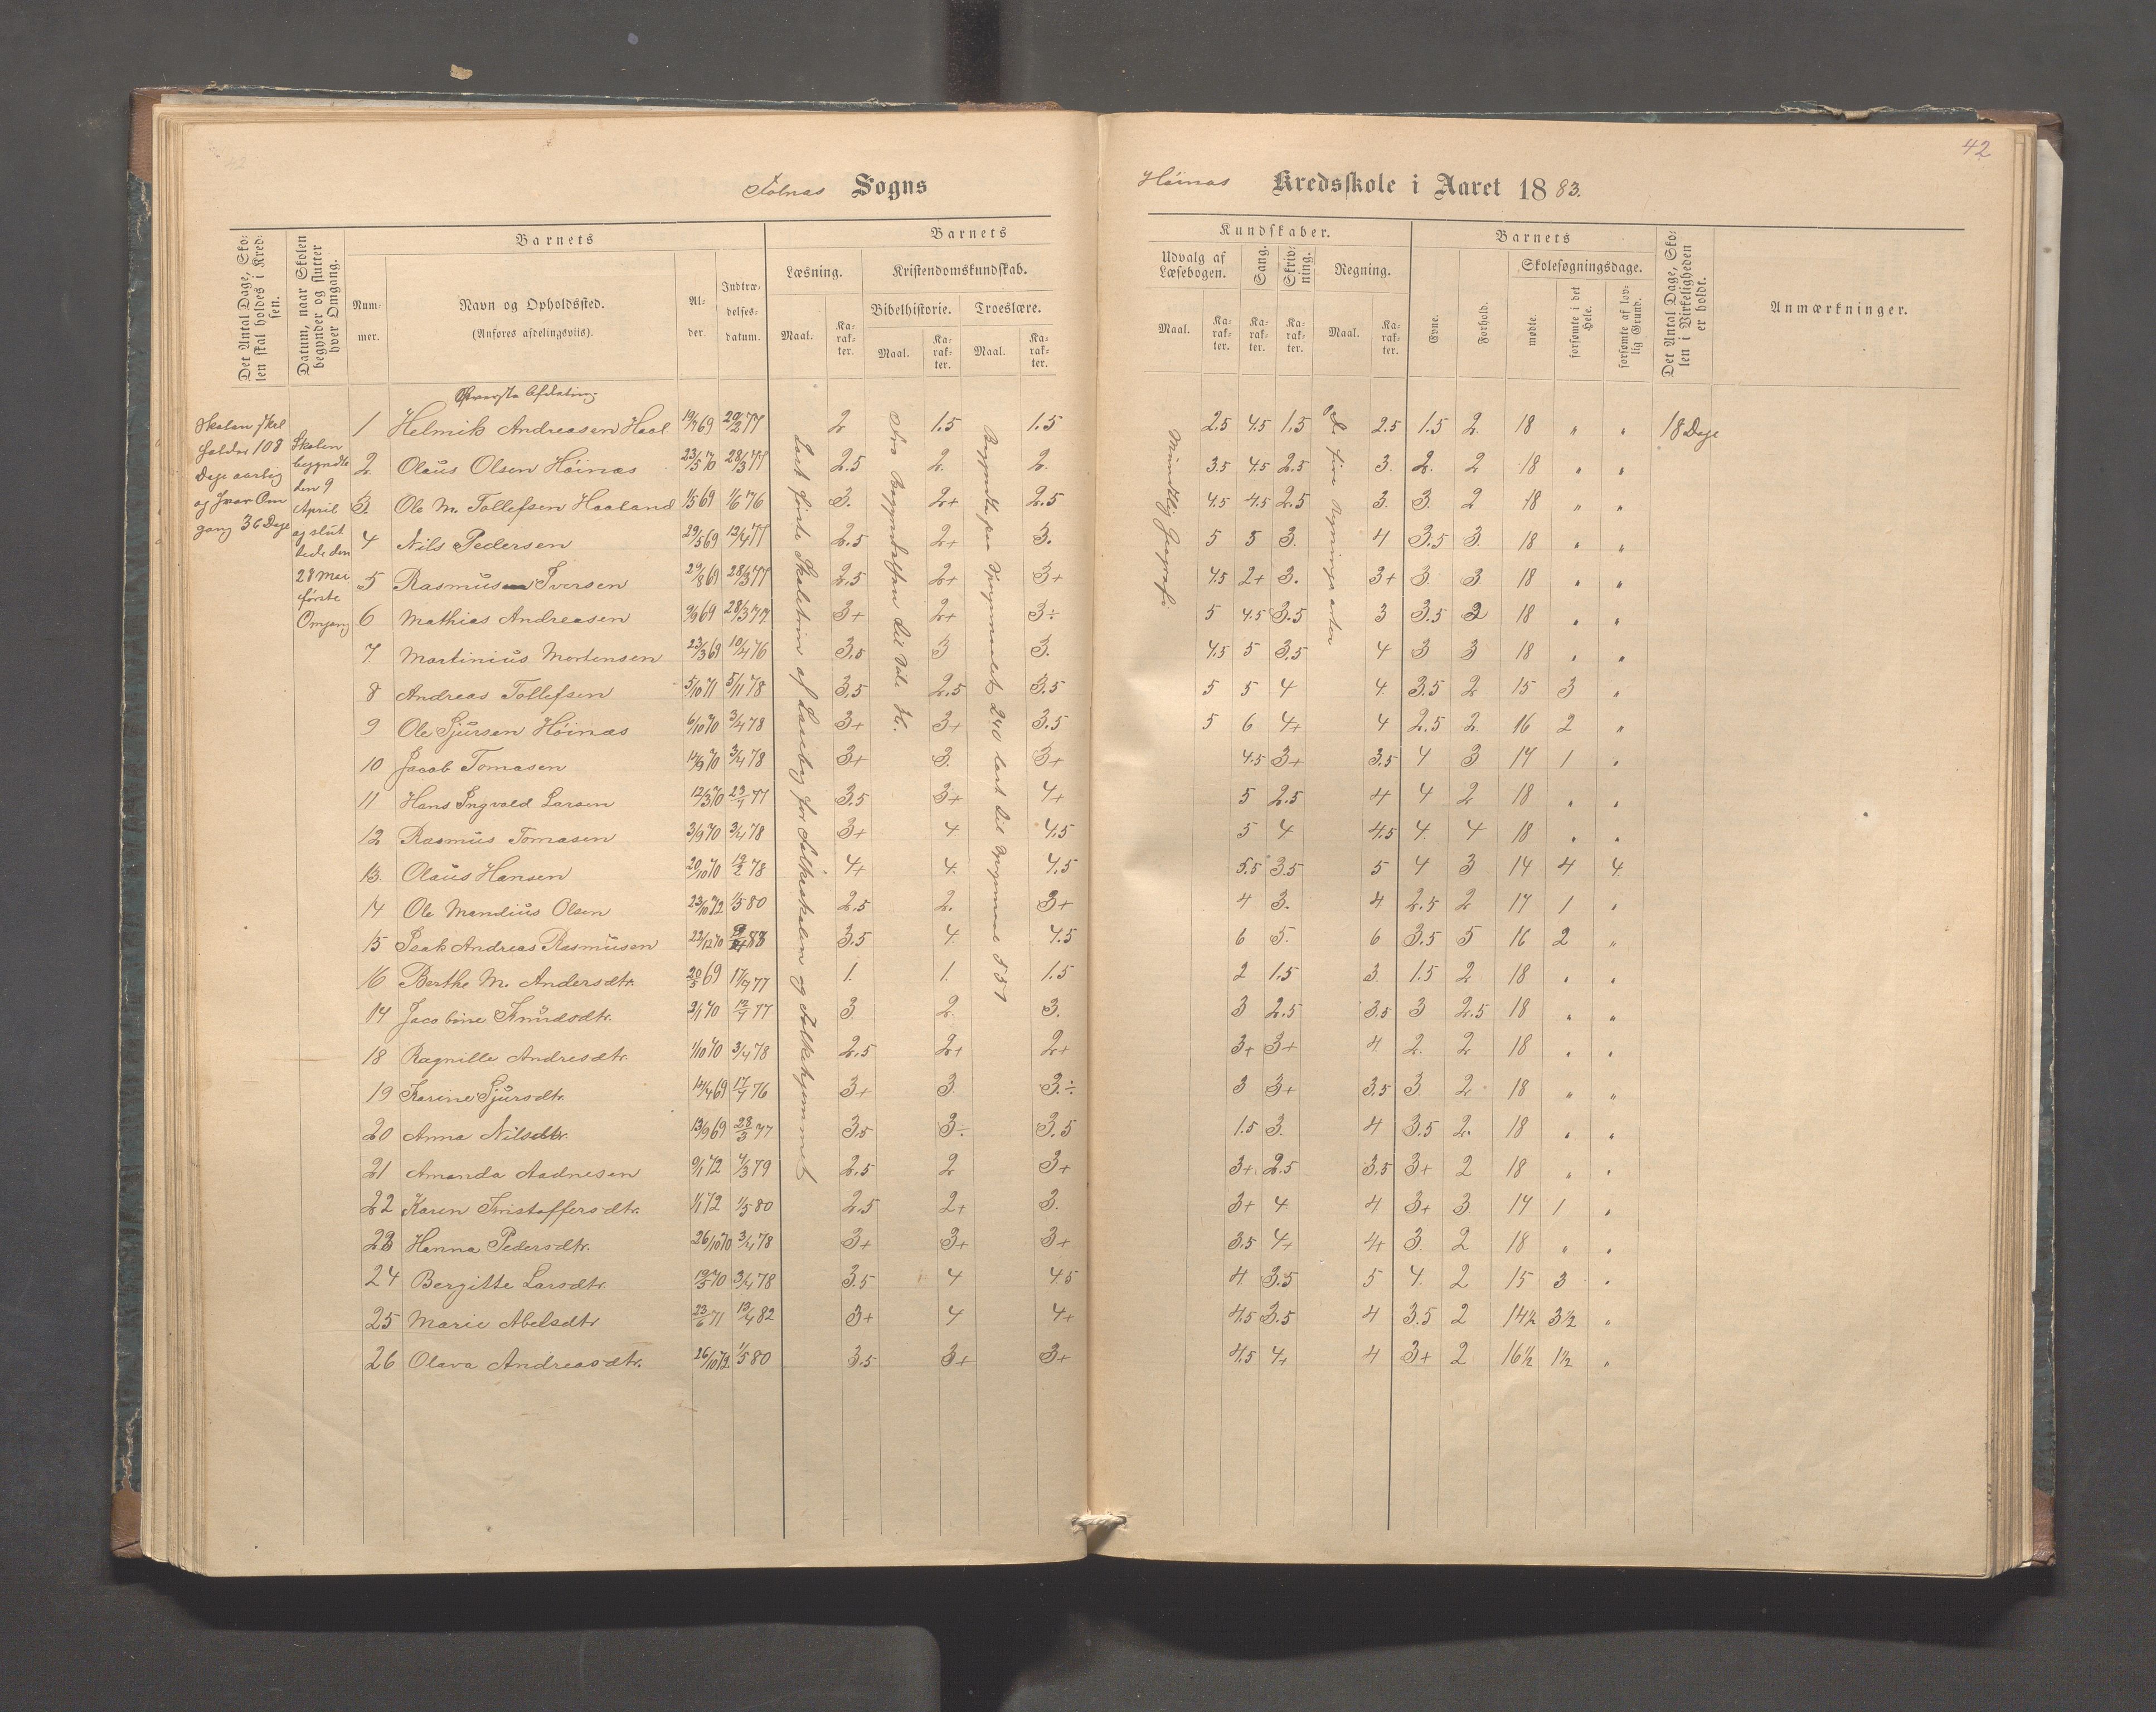 42
Sogns
Høinæs Kredsskole i Aaret 1883.
Det Antal Dage, Skolen skal holdes i Kredsen.
Datum, naar Skolen begynder og slutter hver Omgang.
Barnets
Nummer.
Navn og Opholdssted.
(Anføres afdelingsviis).
Alder.
Indtrædelsesdatum.
Barnets
Læsning.
Maal.
Karakter.
Kristendomskundskab.
Bibelhistorie.
Maal.
Karakter.
Troeslære.
Maal.
Karakter.
Kundskaber.
Udvalg af Læsebogen.
Maal.
Karakter.
Sang.
Karakter.
Skrivning.
Karakter.
Regning.
Maal.
Karakter.
Barnets
Evne.
Forhold.
Skolesøgningsdage.
mødte.
forsømte i det Hele.
forsømte af lovlig Grund.
Det Antal Dage, Skolen i Virkeligheden er holdt.
Anmærkninger.
Øverste Afdeling
Skolen skal
holdes 108
Dage aarlig
og hver Om
gang 36 Dage
Skolen
begyndte
den 9
April
og slut
tede den
28 Mai
første
Omgang
Læst første Skoletrin af Læsebog for Folkeskolen og Folkehjemmet
Fra Begyndelsen til
Begyndte paa Spørgsmaalet 240 læst til Spørgsmaal 551
Mundtlig Geografi
De fire Regnings arter
1 Helmik Andreasen Haal 19/7 69 20/2 77 2 1.5 1.5 2.5 4.5 1.5 2.5 1.5 2 18 " " 18 Dage
2 Olaus Olsen Høinæs 23/5 70 28/3 77 2.5 2. 2. 3.5 4.5 2.5 3. 2. 2 18 " "
3. Ole M. Tollefsen Haaland 1/5 69 1/6 76 3. 2+ 2.5 4.5 4.5 2.5 3. 3. 2 18 " "
4 Nils Pedersen 29/5 69 12/4 77 2.5 2+ 3. 5 5 3. 4 3.5 3. 18 " "
5 Rasmus Iversen 29/8 69 28/3 77 2.5 2+ 3+ 4.5 2+ 3. 3+ 3. 3. 18 " "
6 Mathias Andreasen 9/9 69 28/3 77 3+ 2+ 3÷ 5 4.5 3.5 3 3.5 2 18 " "
7. Martinius Mortensen 23/3 69 10/4 76 3.5 3 3. 4.5 5 3.5 4 3 3 18 " "
8 Andreas Tollefsen 5/10 71 5/11 78 3.5 2.5 3.5 5 5 4 4. 3.5 2 15 3 "
9 Ole Sjursen Høinæs 6/10 70 3/4 78 3+ 3+ 3.5 5 6 4+ 4 2.5 2. 16 2 "
10 Jacob Tomasen 14/9 70 3/4 78 3+ 3. 3+ 4.5 3+ 3.5 4 3 17 1 "
11 Hans Ingvald Larsen 12/3 70 23/4 77 3.5 3+ 4+ 5 2.5 4 4 2 18 " "
12 Rasmus Tomasen 3/9 70 3/4 78 3+ 4 4.5 5 4 4.5 4. 4 18 " "
13. Olaus Hansen 20/10 70 12/2 78 4+ 4. 4.5 5.5 3.5 5 4 3 14 4 4
14 Ole Mandius Olsen 23/10 72 1/5 80 2.5 2. 3+ 4 3. 4 2.5 2 17 1 "
15 Isak Andreas Rasmusen 22/12 70 9/4 83 3.5 4. 4.5 6 5. 6 3.5 5 16 2 "
16 Berthe M. Andersdtr. 20/5 69 17/4 77 1. 1. 1.5 2 1.5 3. 1.5 2 18 " "
17 Jacobine Knudsdtr. 2/1 70 12/4 77 3. 2. 3. 3 2.5 3.5 3 2.5 18 " "
18 Ragnille Andresdtr. 1/10 70 3/4 78 2.5 2+ 2+ 3+ 3+ 4. 2. 2 18 " "
19 Karine Sjursdtr. 14/4 69 17/4 76 3+ 3. 3.÷ 3 3+ 3.5 3. 2. 18 " "
20 Anna Nilsdtr. 13/9 69 28/3 77 3.5 3÷ 3.5 1.5 3. 4 3.5 2. 18 " "
21 Amanda Aadnesen 9/1 72 4/3 79 2.5 2 3+ 3+ 2.5 3.5 3+ 2 18 " "
22 Karen Kristoffersdtr. 1/1 72 1/5 80 2.5 2+ 3. 3+ 4 4 3+ 3 17 1 "
23 Hanna Pedersdtr. 26/10 70 3/4 78 3+ 3+ 3+ 3.5 4+ 4+ 3. 2 18 " "
24 Bergitte Larsdtr. 19/3 70 3/4 78 3.5 4 4.5 4. 3.5 5 4. 2 15 3 "
25 Marie Abelsdtr 23/6 71 13/4 82 3+ 4 4+ 4.5 3.5 4 3.5 2 14½ 3½ "
26 Olava Andreasdtr. 26/10 72 1/5 80 3.5 3+ 3+ 4.5 4+ 4 3+ 2 16½ 1½ "